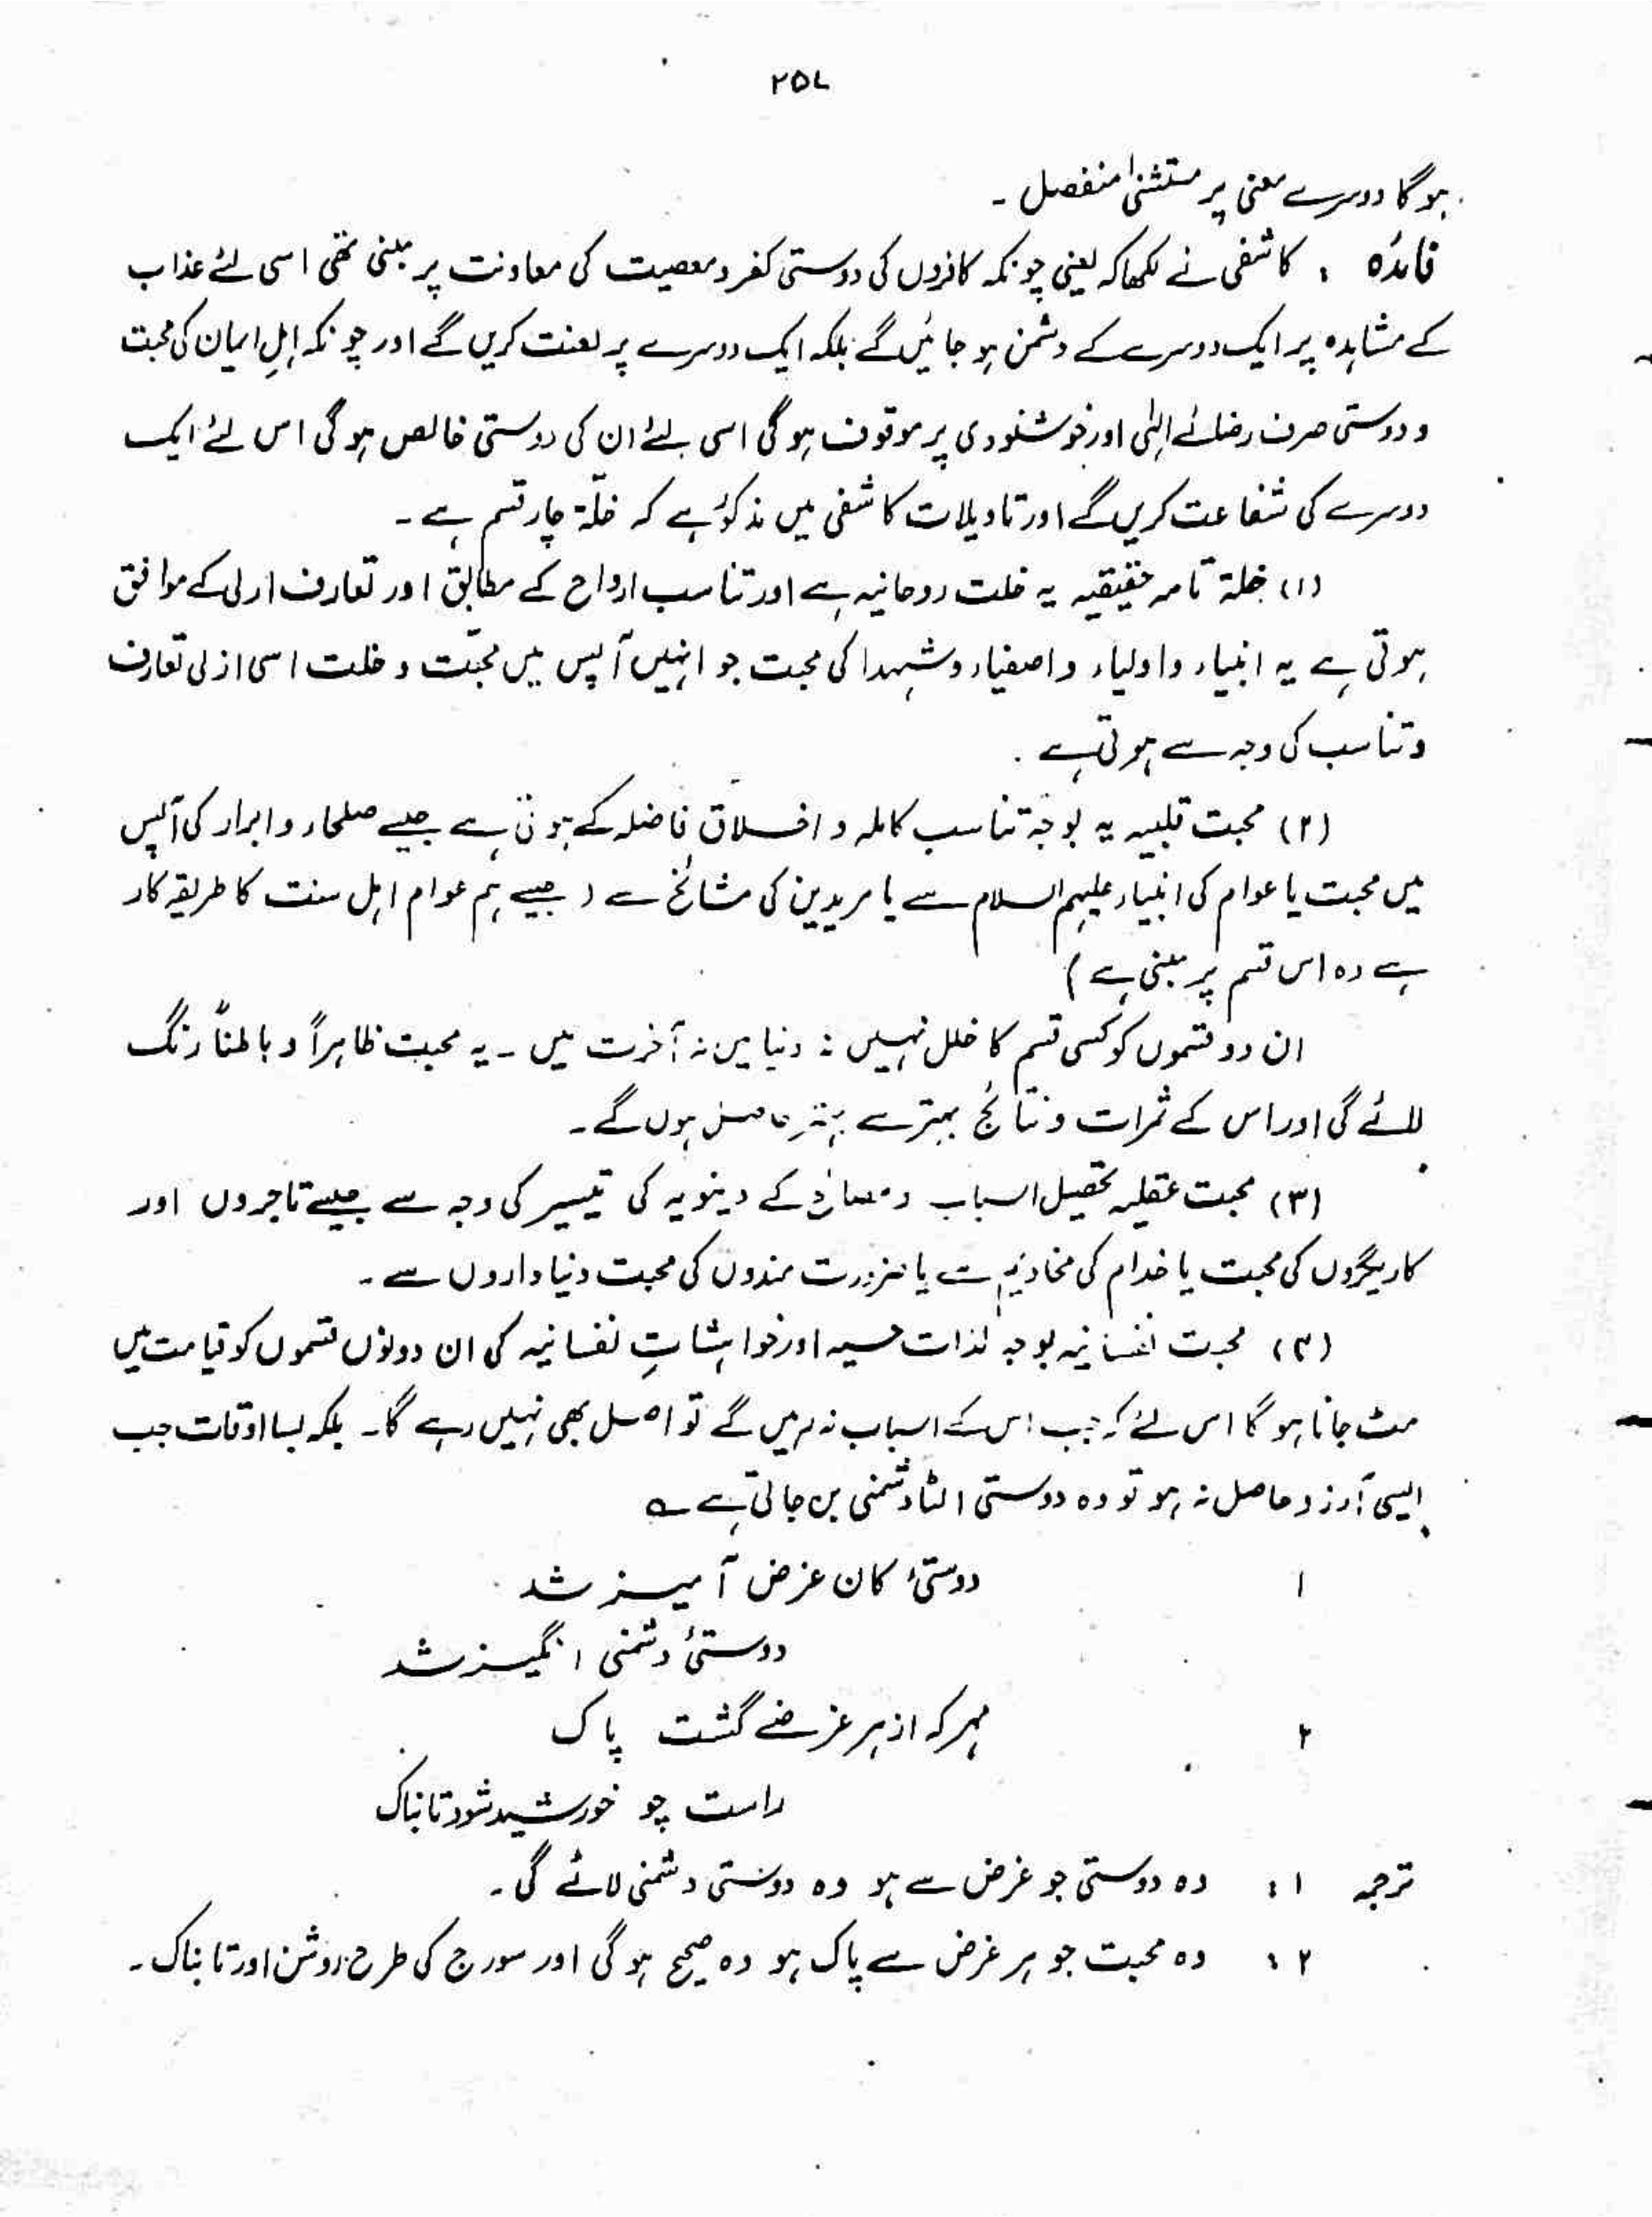 ۲۵۷
ہوگا دوسرے معنی پر مستثنیٰ منفصل ۔
فائدہ : کاشفی نے لکھا کہ یعنی چونکہ کافروں کی دوستی کفر و معصیت کی معاونت پر مبنی تھی اسی لئے عذاب
کے مشاہدہ پر ایک دوسرے کے دشمن ہو جائیں گے بلکہ ایک دوسرے پر لعنت کریں گے اور چونکہ اہلِ ایمان کی محبت
و دوستی صرف رضائے الٰہی اور خوشنودی پر موقوف ہوگی اسی لئے ان کی دوستی خالص ہوگی اس لئے ایک
دوسرے کی شفاعت کریں گے اور تاویلات کاشفی میں مذکور ہے کہ خلّۃ چار قسم ہے ۔
(۱) خلۃ تامہ حقیقیہ یہ خلت روحانیہ ہے اور تناسب ارواح کے مطابق اور تعارف ازلی کے موافق
ہوتی ہے یہ انبیاء و اولیاء و اصفیاء و شہدا کی محبت جو انہیں آپس میں محبّت و خلت اسی ازلی تعارف
و تناسب کی وجہ سے ہوتی ہے ۔
(۲) محبت قلبیہ یہ بوجہ تناسب کاملہ و اخلاق فاضلہ کے ہوتی ہے جیسے صلحاء و ابرار کی آپس
میں محبت یا عوام کی انبیاء علیہم السلام سے یا مریدین کی مشائخ سے ( جیسے ہم عوام اہل سنت کا طریقہ کار
ہے وہ اس قسم پر مبنی ہے )
ان دو قسموں کو کسی قسم کا خلل نہیں نہ دنیا میں نہ آخرت میں ۔ یہ محبت ظاہراً و باطناً رنگ
لائے گی اور اس کے ثمرات و نتائج بہتر سے بہتر حاصل ہوں گے ۔
(۳) محبت عقلیہ تحصیل اسباب و مصالح کے دینویہ کی تیسیر کی وجہ سے جیسے تاجروں اور
کاریگروں کی محبت یا خدام کی مخادیم سے یا ضرورت مندوں کی محبت دنیا داروں سے ۔
(۴) محبت نفسانیہ بوجہ لذات حسیہ اور خواہشاتِ نفسانیہ کی ان دونوں قسموں کو قیامت میں
مٹ جانا ہوگا اس لئے کہ جب اس کے اسباب نہ رہیں گے تو اصل بھی نہیں رہے گا ۔ بلکہ بسا اوقات جب
ایسی آرزو حاصل نہ ہو تو وہ دوستی الٹا دشمنی بن جاتی ہے ؎
۱ دوستیٔ کان غرض آمیز شد
دوستیٔ دشمنی انگیز شد
۲ مہر کہ از ہر غرضے گشت پاک
راست چو خورشید شود تابناک
ترجمہ ۱ : وہ دوستی جو غرض سے ہو وہ دوستی دشمنی لائے گی ۔
۲ : وہ محبت جو ہر غرض سے پاک ہو وہ صحیح ہوگی اور سورج کی طرح روشن اور تابناک ۔